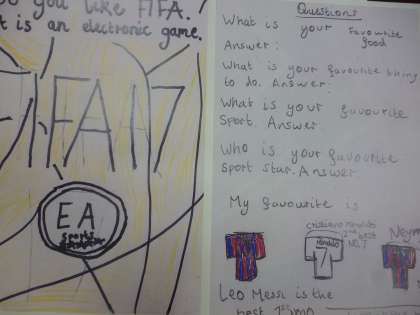 you like FIFA.
is an electronic game.
FIFA 17
EA
Sports
Questions
What is your favourite
food
Answer:
What is your favourite thing
to do. Answer:
What is your favourite
Sport. Answer:
Who is your favourite
sport star. Answer:
My favourite is
Cristiano Ronaldo
2nd best
NO.7
Ronaldo
7
Leo Messi is the
best